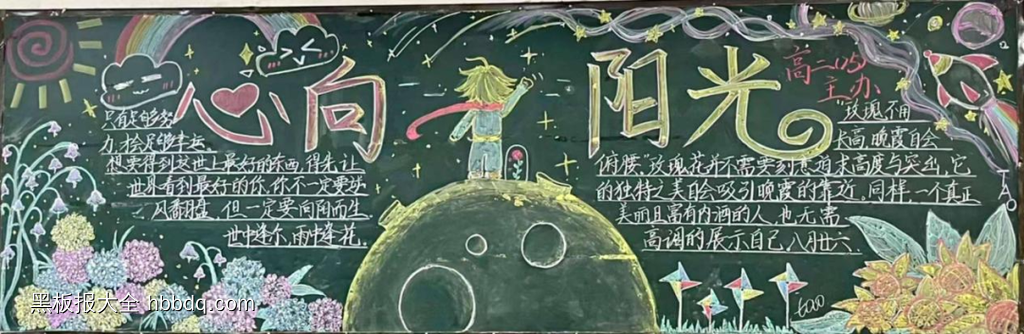 心向阳光
高二(15)
主办
只有足够努
力,才会足够幸运
想要得到这世上最好的东西,得先让
世界看到最好的你,你不一定要逆
风翻盘,但一定要向阳而生
世中逢尔,雨中逢花,
"玫瑰不用
长高,晚霞自会
俯腰,"玫瑰花并不需要刻意追求高度与突出,它
的独特之美自会吸引晚霞的靠近。同样,一个真正
美丽且富有内涵的人,也无需
高调的展示自己,八月廿六
TAO
tao
黑板报大全 hbbdq.com